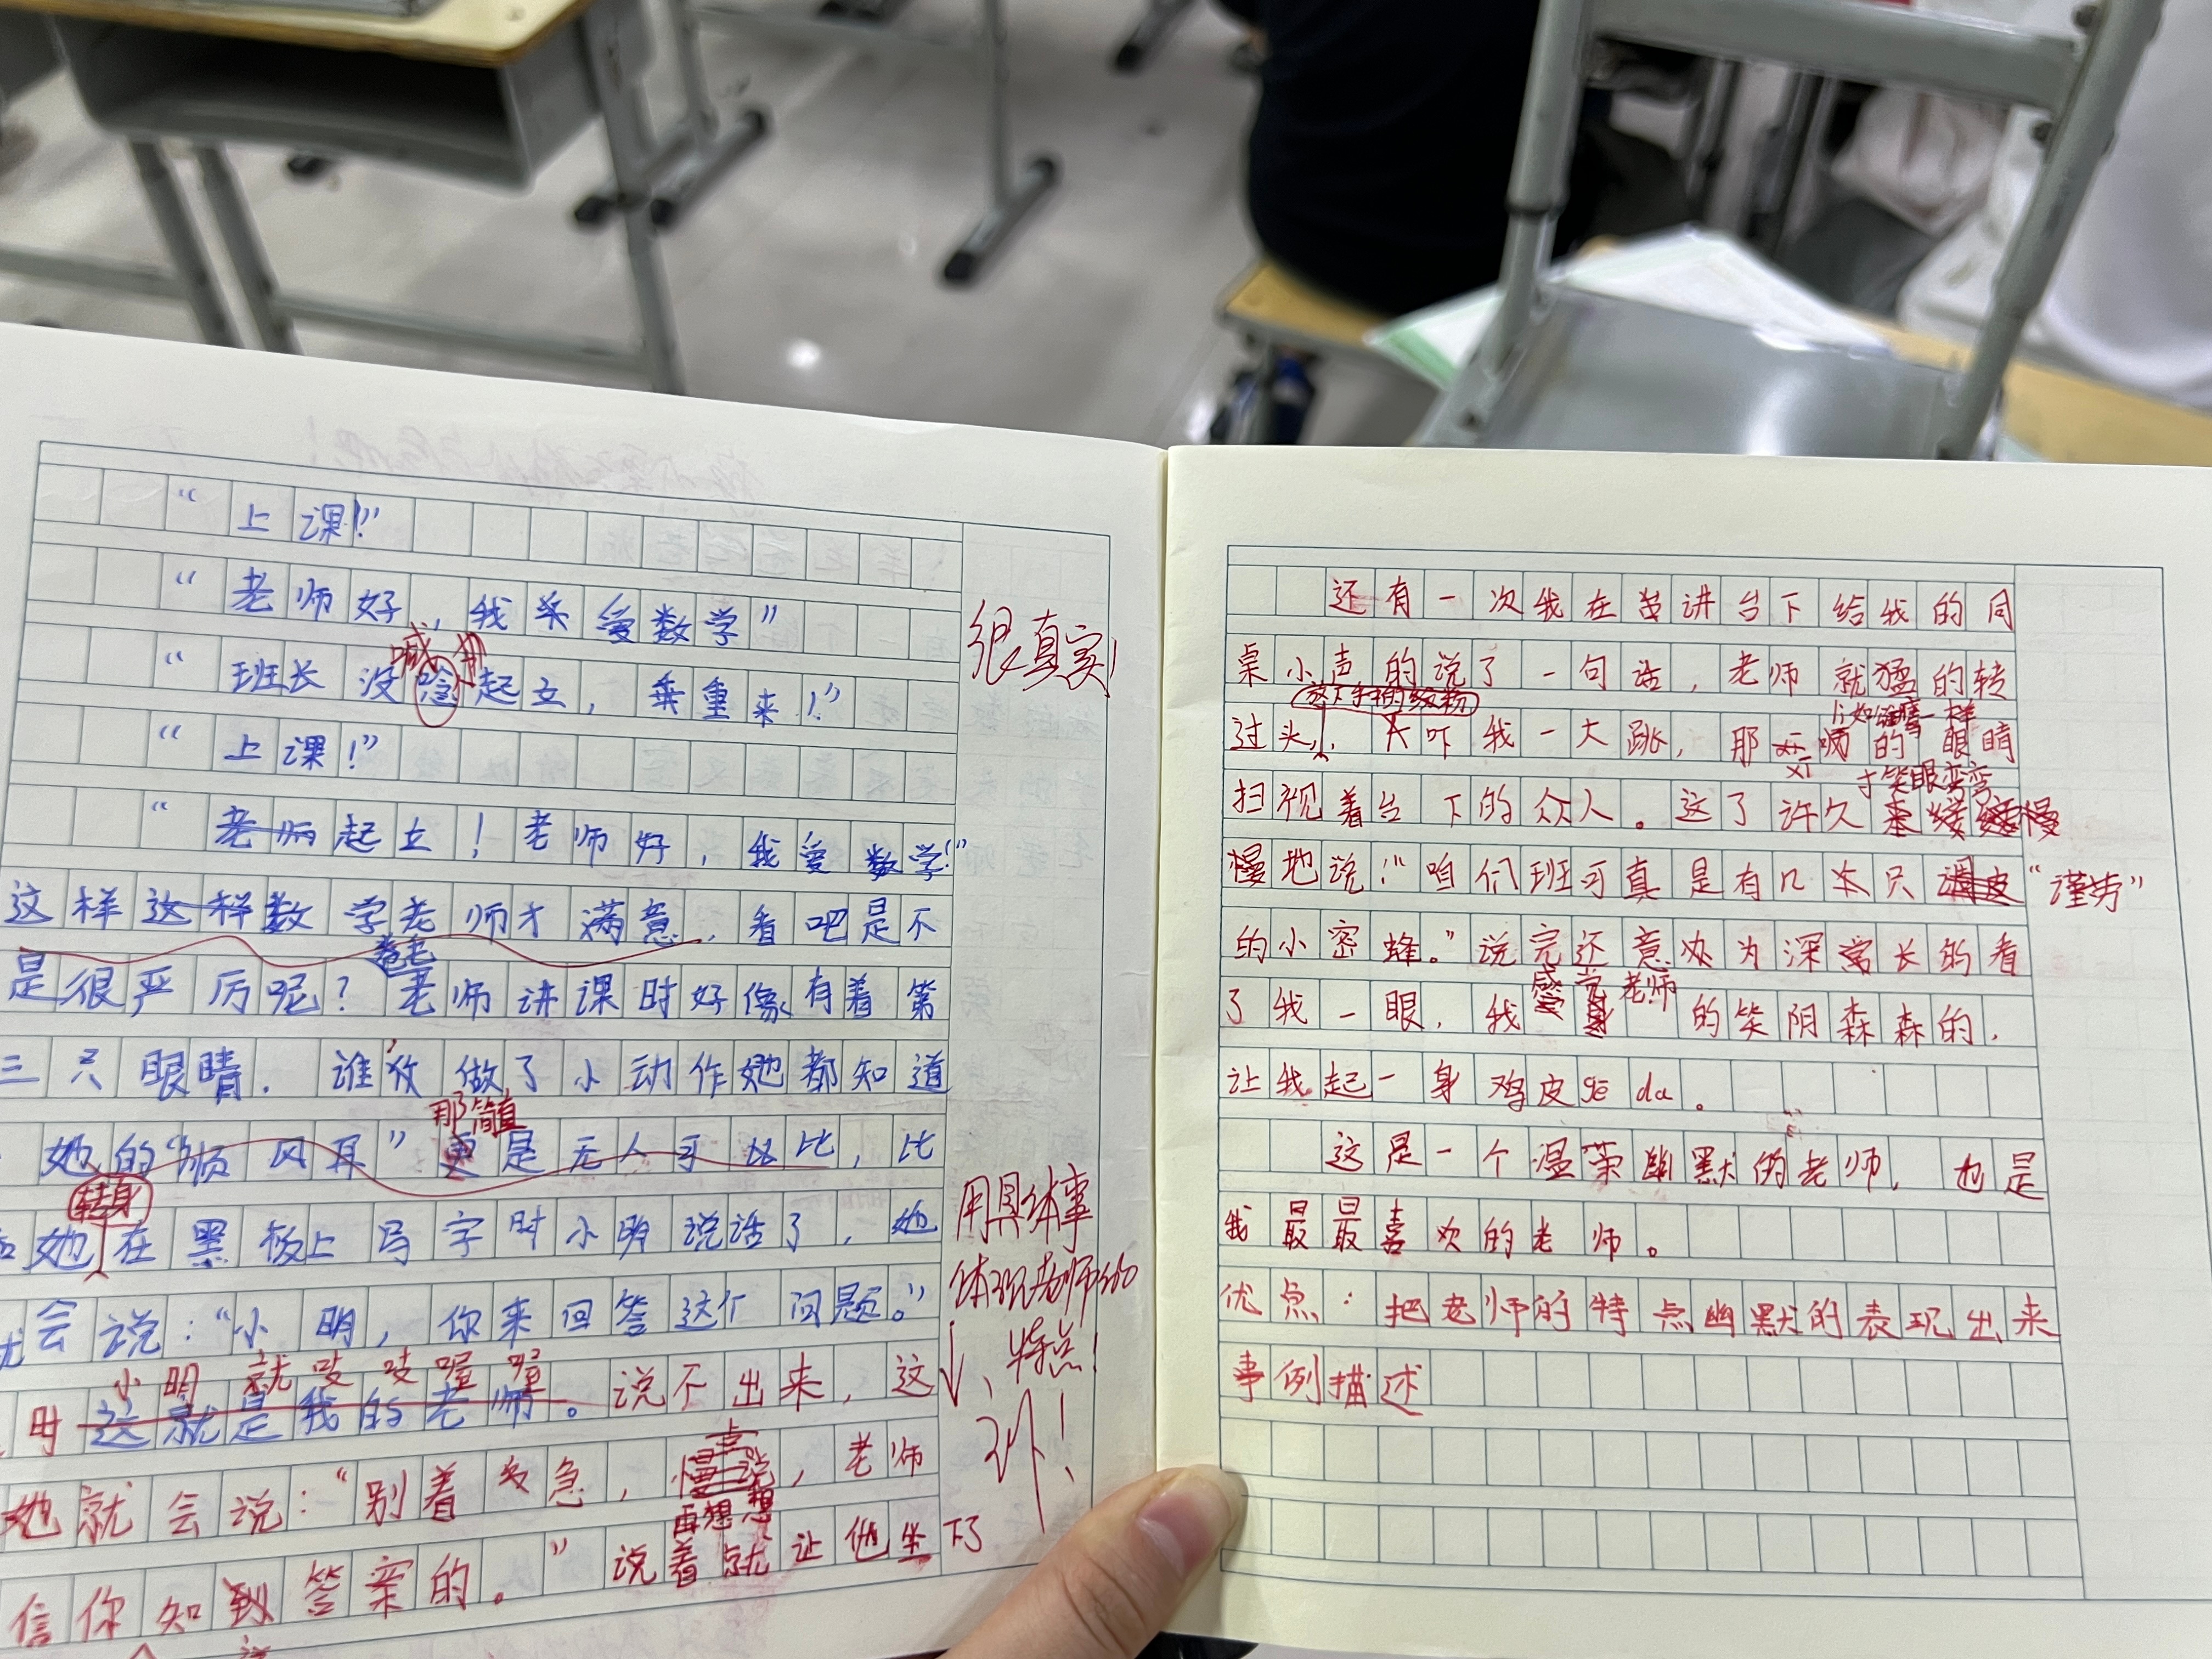 “上课!”
“老师好,我爱数学”
喊
“班长没起立,重来!”
“上课!”
“老师起立!老师好,我爱数学!”
这样这样数学老师才满意,看吧是不
是很严厉呢?老师讲课时好像有着第
三只眼睛.谁做了小动作她都知道
那简直
她的“顺风耳”更是无人可比,比
转身
她在黑板上写字时小明说话了,她
会说:“小明,你来回答这个问题。”
小明就吱吱喔喔
时这就是我的老师。说不出来,这
她就会说:“别着急,慢说,老师
再想想
信你知到答案的。”说着就让他坐下了
很真实!
用具体事
体现老师的
特点!
还有一次我在讲台下给我的同
桌小声的说了一句话,老师就猛的转
放下手中的
过头,吓我一大跳,那师的眼睛
才笑眼弯弯
扫视着台下的众人。这了许久慢
慢地说:“咱们班可真是有几只调皮“谨劳”
的小密蜂。”说完还意为深常长的看
感觉老师
了我一眼,我的笑阴森森的,
让我起一身鸡皮gē da。
这是一个温荣幽默的老师,也是
我最最喜欢的老师。
优点:把老师的特点幽默的表现出来
事例描述